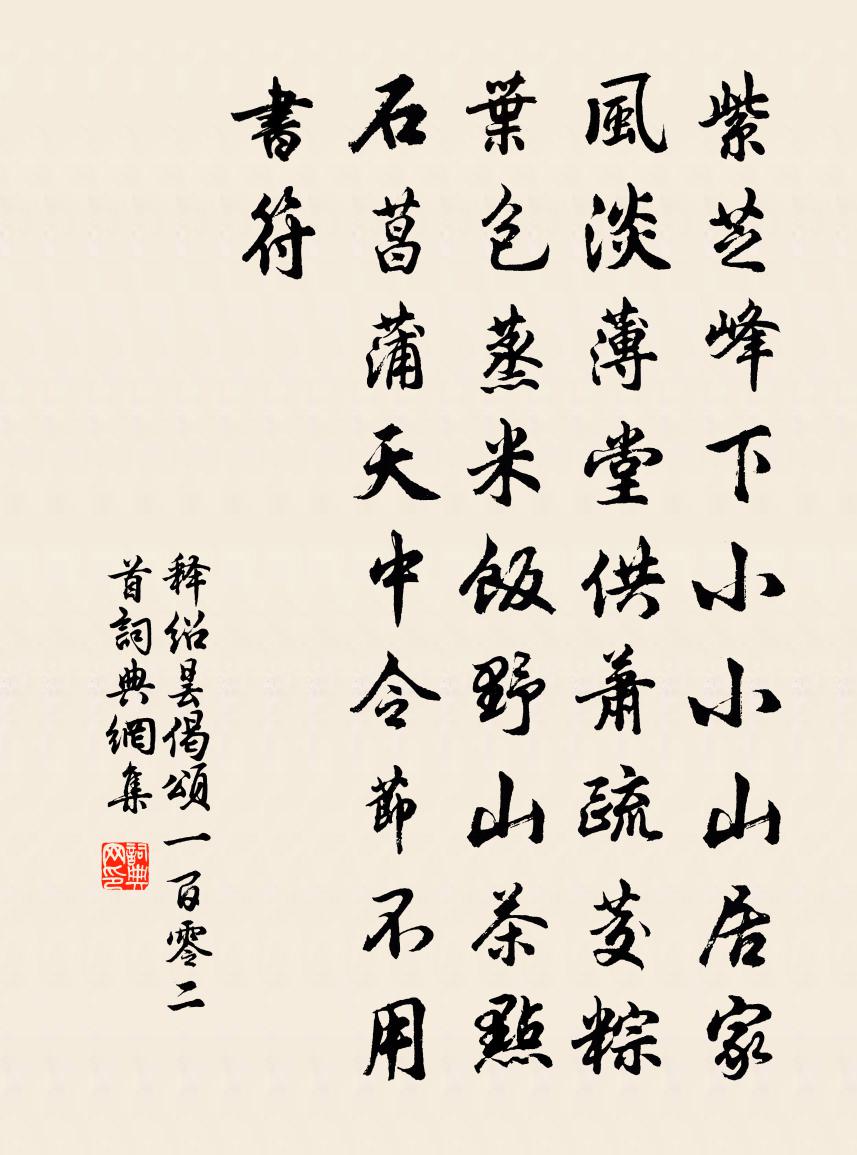 紫芝峰下小小山居家
風淡薄堂供蕭疏茭粽
葉包蒸米飯野山茶點
石菖蒲天中令節不用
書符
释绍昙偈頌一百零二
首詞典網集
詞典网印